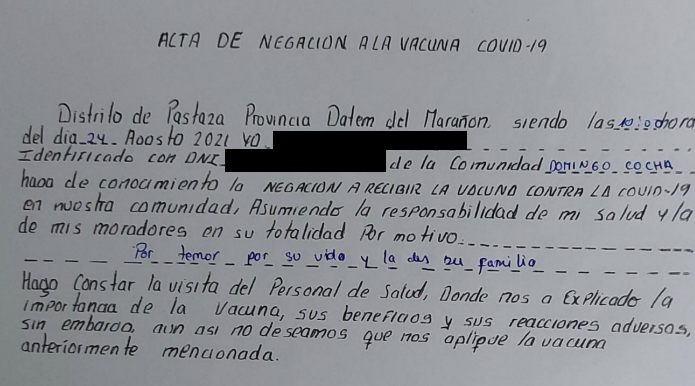 ACTA DE NEGACION A LA VACUNA COVID-19
Distrito de Pastaza Provincia Datem del Marañon. siendo las 10:00 hora
del dia 24 Agosto 2021 YO
Identificado con DNI de la Comunidad DOMINGO COCHA
hago de conocimiento la NEGACION A RECIBIR LA VACUNA CONTRA LA COVID-19
en nuestra comunidad, Asumiendo la responsabilidad de mi salud y la
de mis moradores en su totalidad Por motivo.
Por temor por su vida y la de su familia
Hago Constar la visita del Personal de Salud, Donde nos a Explicado la
importancia de la Vacuna, sus beneficios y sus reacciones adversas,
sin embargo, aun asi no deseamos que nos aplique la vacuna
anteriormente mencionada.